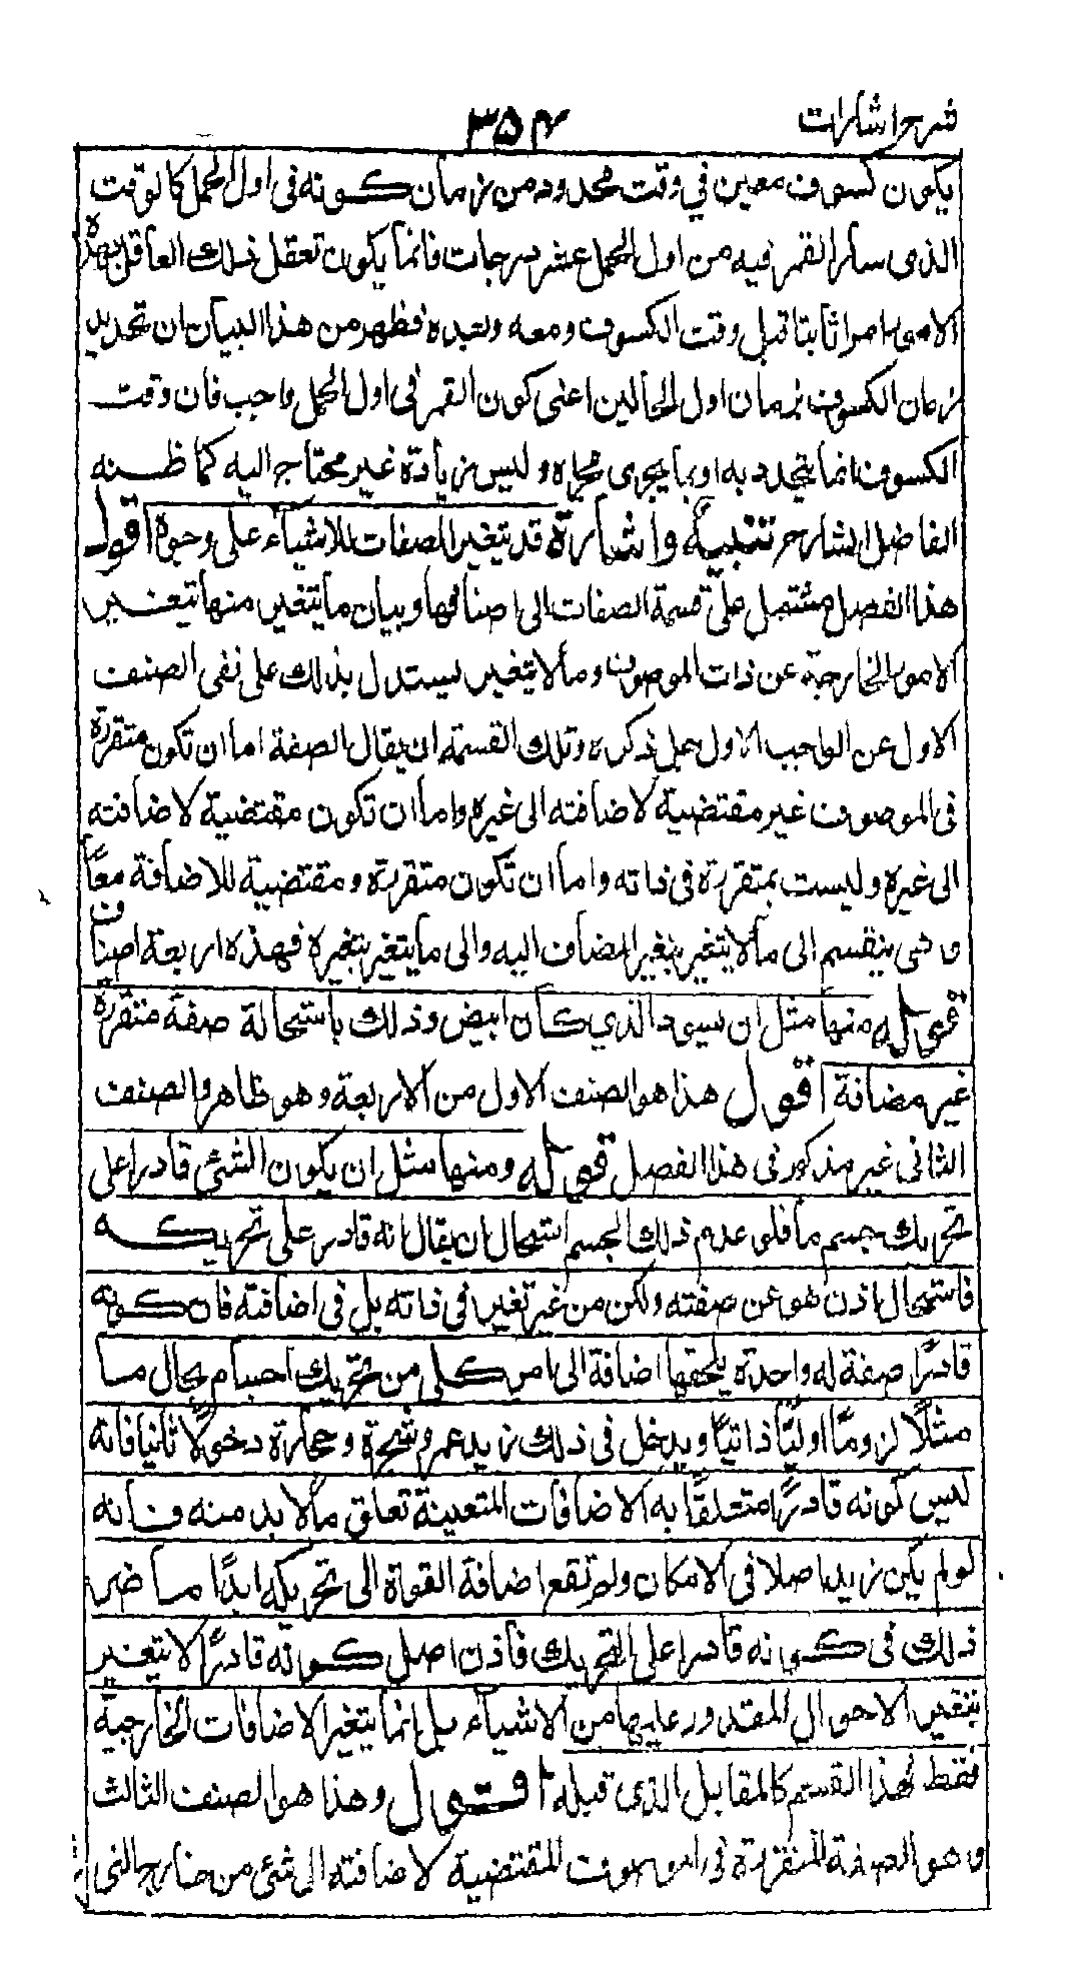 شرح اشارات ۳۵۴
يكون كسوف معين في وقت محدود من زمان كونه فى اول الحمل كالوقت
الذى سار القمر فيه من اول الحمل عشر درجات فانما يكون تعقل ذلك العاقل بهذه
الامور امرا ثابتا قبل وقت الكسوف ومعه وبعده فظهر من هذا البيان ان تحديد
زمان الكسوف بزمان اول الحالين اعنى كون القمر فى اول الحمل واجب فان وقت
الكسوف انما يتحدد به او بما يجرى مجراه وليس زيادة غير محتاج اليه كما ظنه
الفاضل الشارح تنبيه واشارة قد يتغير الصفات للاشياء على وجوه اقول
هذا الفصل مشتمل على قسمة الصفات الى اصنافها وبيان ما يتغير منها بتغير
الامور الخارجة عن ذات الموصوف وما لا يتغير ليستدل بذلك على نفى الصنف
الاول عن الواجب الاول جل ذكره وتلك القسمة ان يقال الصفة اما ان تكون متقررة
فى الموصوف غير مقتضية لاضافته الى غيره واما ان تكون مقتضية لاضافته
الى غيره وليست بمتقررة فى ذاته واما ان تكون متقررة ومقتضية للاضافة معًا
وهى ينقسم الى ما لا يتغير بتغير المضاف اليه والى ما يتغير بتغيره فهذه اربعة اصناف
قوله منها مثل ان يسود الذي كان ابيض وذلك باستحالة صفة متقررة
غير مضافة اقول هذا هو الصنف الاول من الاربعة وهو ظاهر والصنف
الثانى غير مذكور فى هذا الفصل قوله ومنها مثل ان يكون الشئ قادرا على
تحريك جسم ما فلو عدم ذلك الجسم استحال ان يقال انه قادر على تحريكه
فاستحال اذن هو عن صفته ولكن من غير تغير فى ذاته بل فى اضافته فان كونه
قادرًا صفة له واحدة يلحقها اضافة الى امر كلى من تحريك اجسام بحال ما
مثلًا لزومًا اوليًا ذاتيًا ويدخل فى ذلك زيد عمرو وشجرة وحجارة دخولًا ثانيا فانه
ليس كونه قادرًا متعلقًا به الاضافات المتعينة تعلق ما لا بد منه فانه
لو لم يكن زيد اصلا فى الامكان ولم تقع اضافة القوة الى تحريكه ابدًا ما ضر
ذلك فى كونه قادرا على التحريك فاذن اصل كونه قادرًا لا يتغير
بتغير الاحوال المقدور عليها من الاشياء بل انما يتغير الاضافات الخارجية
فقط فهذا القسم كالمقابل الذى قبله اقول وهذا هو الصنف الثالث
وهو الصفة المتقررة فى الموصوف المقتضية لاضافته الى شئ من خارج التى